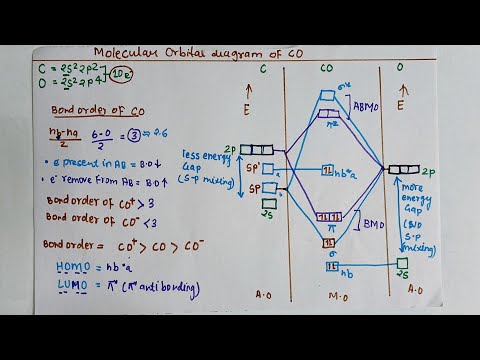 Molecular Orbital diagram of CO
C = 2s² 2p²
O = 2s² 2p⁴
10e⁻
Bond order of CO
nb-na
2
6-0
2
= 3
• e⁻ present in AB = B.O↓
• e⁻ remove from AB = B.O↑
Bond order of CO⁺ > 3
Bond order of CO⁻ < 3
Bond order = CO⁺ > CO > CO⁻
HOMO = nb*a
LUMO = π* (π* anti bonding)
C
CO
O
E
E
σ*
ABMO
π*
2p
2p
less energy
Gap
(S-p mixing)
SP'
nb*a
SP
2s
π
BMO
σ
nb
2s
more
energy
Gap
(NO
S-p
mixing)
A.O
M.O
A.O